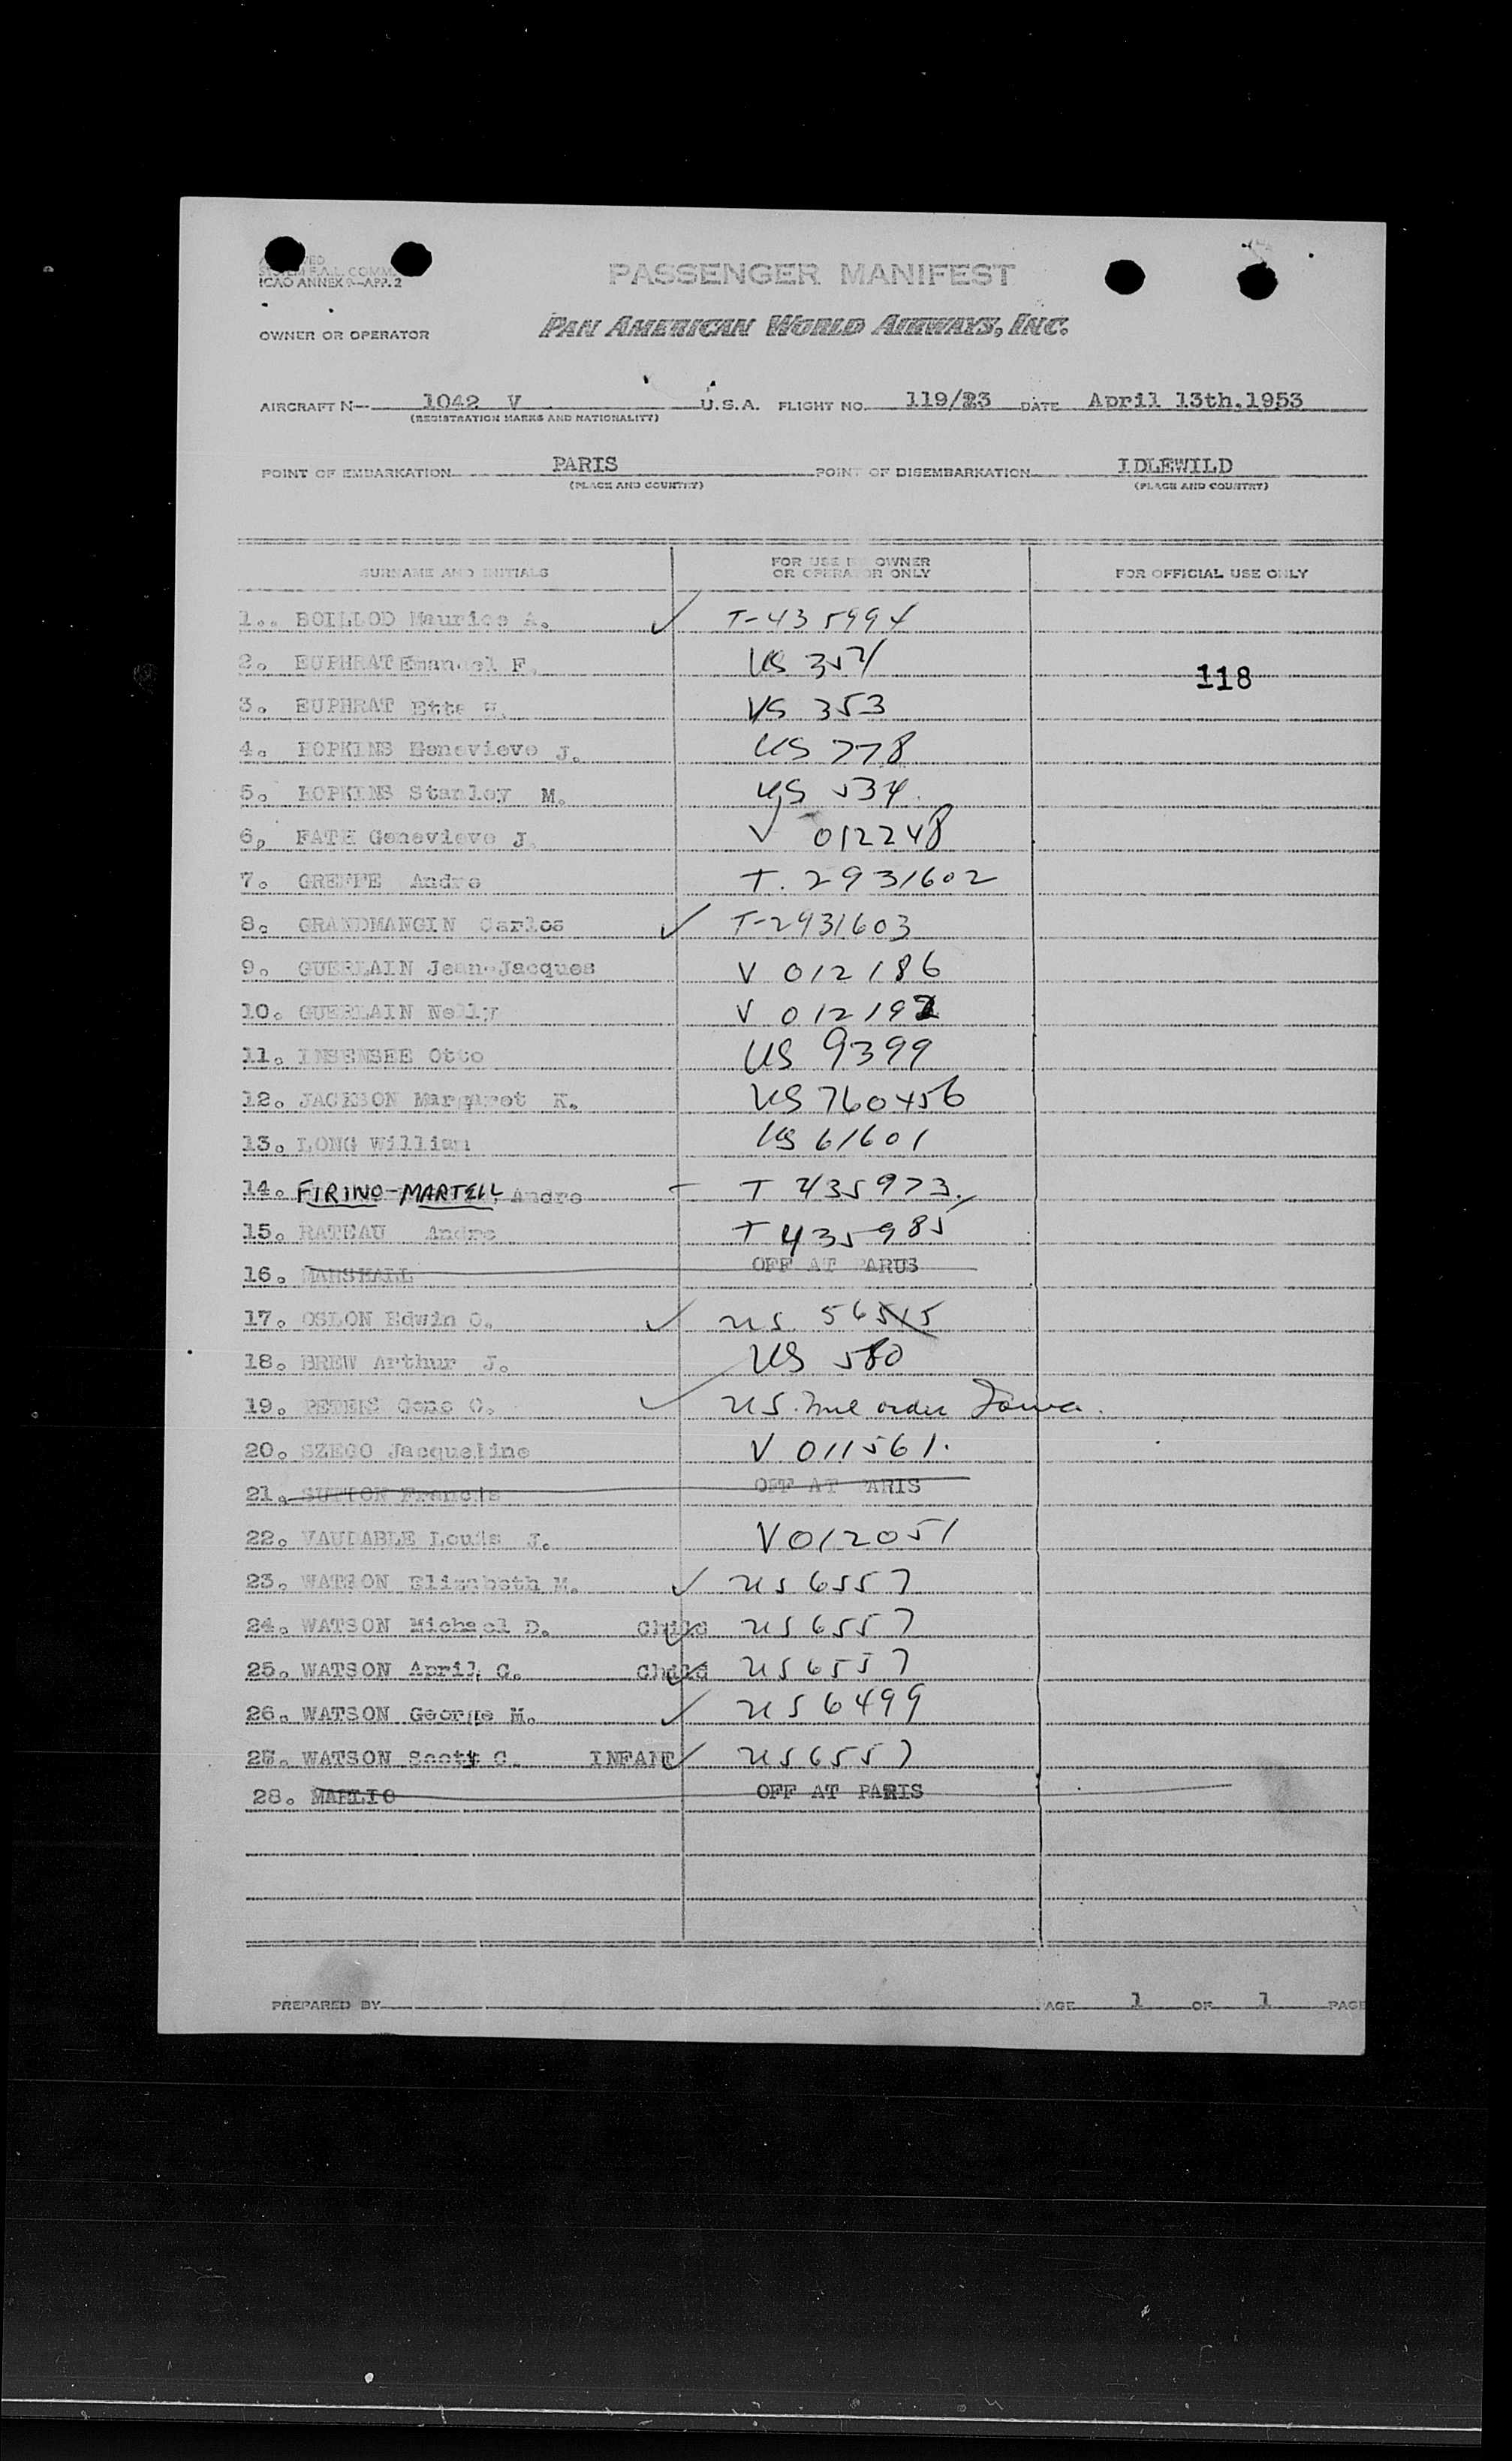 ICAO ANNEX 9-APP. 2
PASSENGER MANIFEST
OWNER OR OPERATOR PAN AMERICAN WORLD AIRWAYS, INC.
AIRCRAFT N- 1042 V U.S.A. FLIGHT NO. 119/23 DATE April 13th,1953
(REGISTRATION MARKS AND NATIONALITY)
POINT OF EMBARKATION PARIS POINT OF DISEMBARKATION IDLEWILD
(PLACE AND COUNTRY) (PLACE AND COUNTRY)
SURNAME AND INITIALS FOR USE BY OWNER OR OPERATOR ONLY FOR OFFICIAL USE ONLY
1.. BOILLOD Maurice A. ✓ T-435994
2. EUPHRAT Emanuel F. US 354
118
3. EUPHRAT Etta US 353
4. HOPKINS Genevieve J. US 778
5. HOPKINS Stanley M. US 534
6, FATH Genevieve J. V 012248
7. GREFFE Andre T. 2931602
8. GRANDMANGIN Carlos ✓ T-2931603
9. GUERLAIN Jean-Jacques V 012186
10. GUERLAIN Nelly V 012192
11. INSENSEE Otto US 9399
12. JACKSON Margaret K. US 760456
13. LONG William US 61601
14. FIRINO-MARTELL Andre - T 435973.
15. RATEAU Andre T 435985
16. MARSHALL OFF AT PARUS
17. OSLON Edwin O. ✓ US 56515
18. BREW Arthur J. US 580
19. PETERS Gene C. ✓ US. order
20. SZEGO Jacqueline V 011561.
21. SUTTON Francis OFF AT PARIS
22. VAUDABLE Louis J. V012051
23. WATSON Elizabeth M. ✓ US 6557
24. WATSON Michael D. Child ✓ US 6557
25. WATSON April C. Child ✓ US 6557
26. WATSON George M. ✓ US 6499
27. WATSON Scott C. INFANT ✓ US 6557
28. OFF AT PARIS
PREPARED BY PAGE 1 OF 1 PAGE